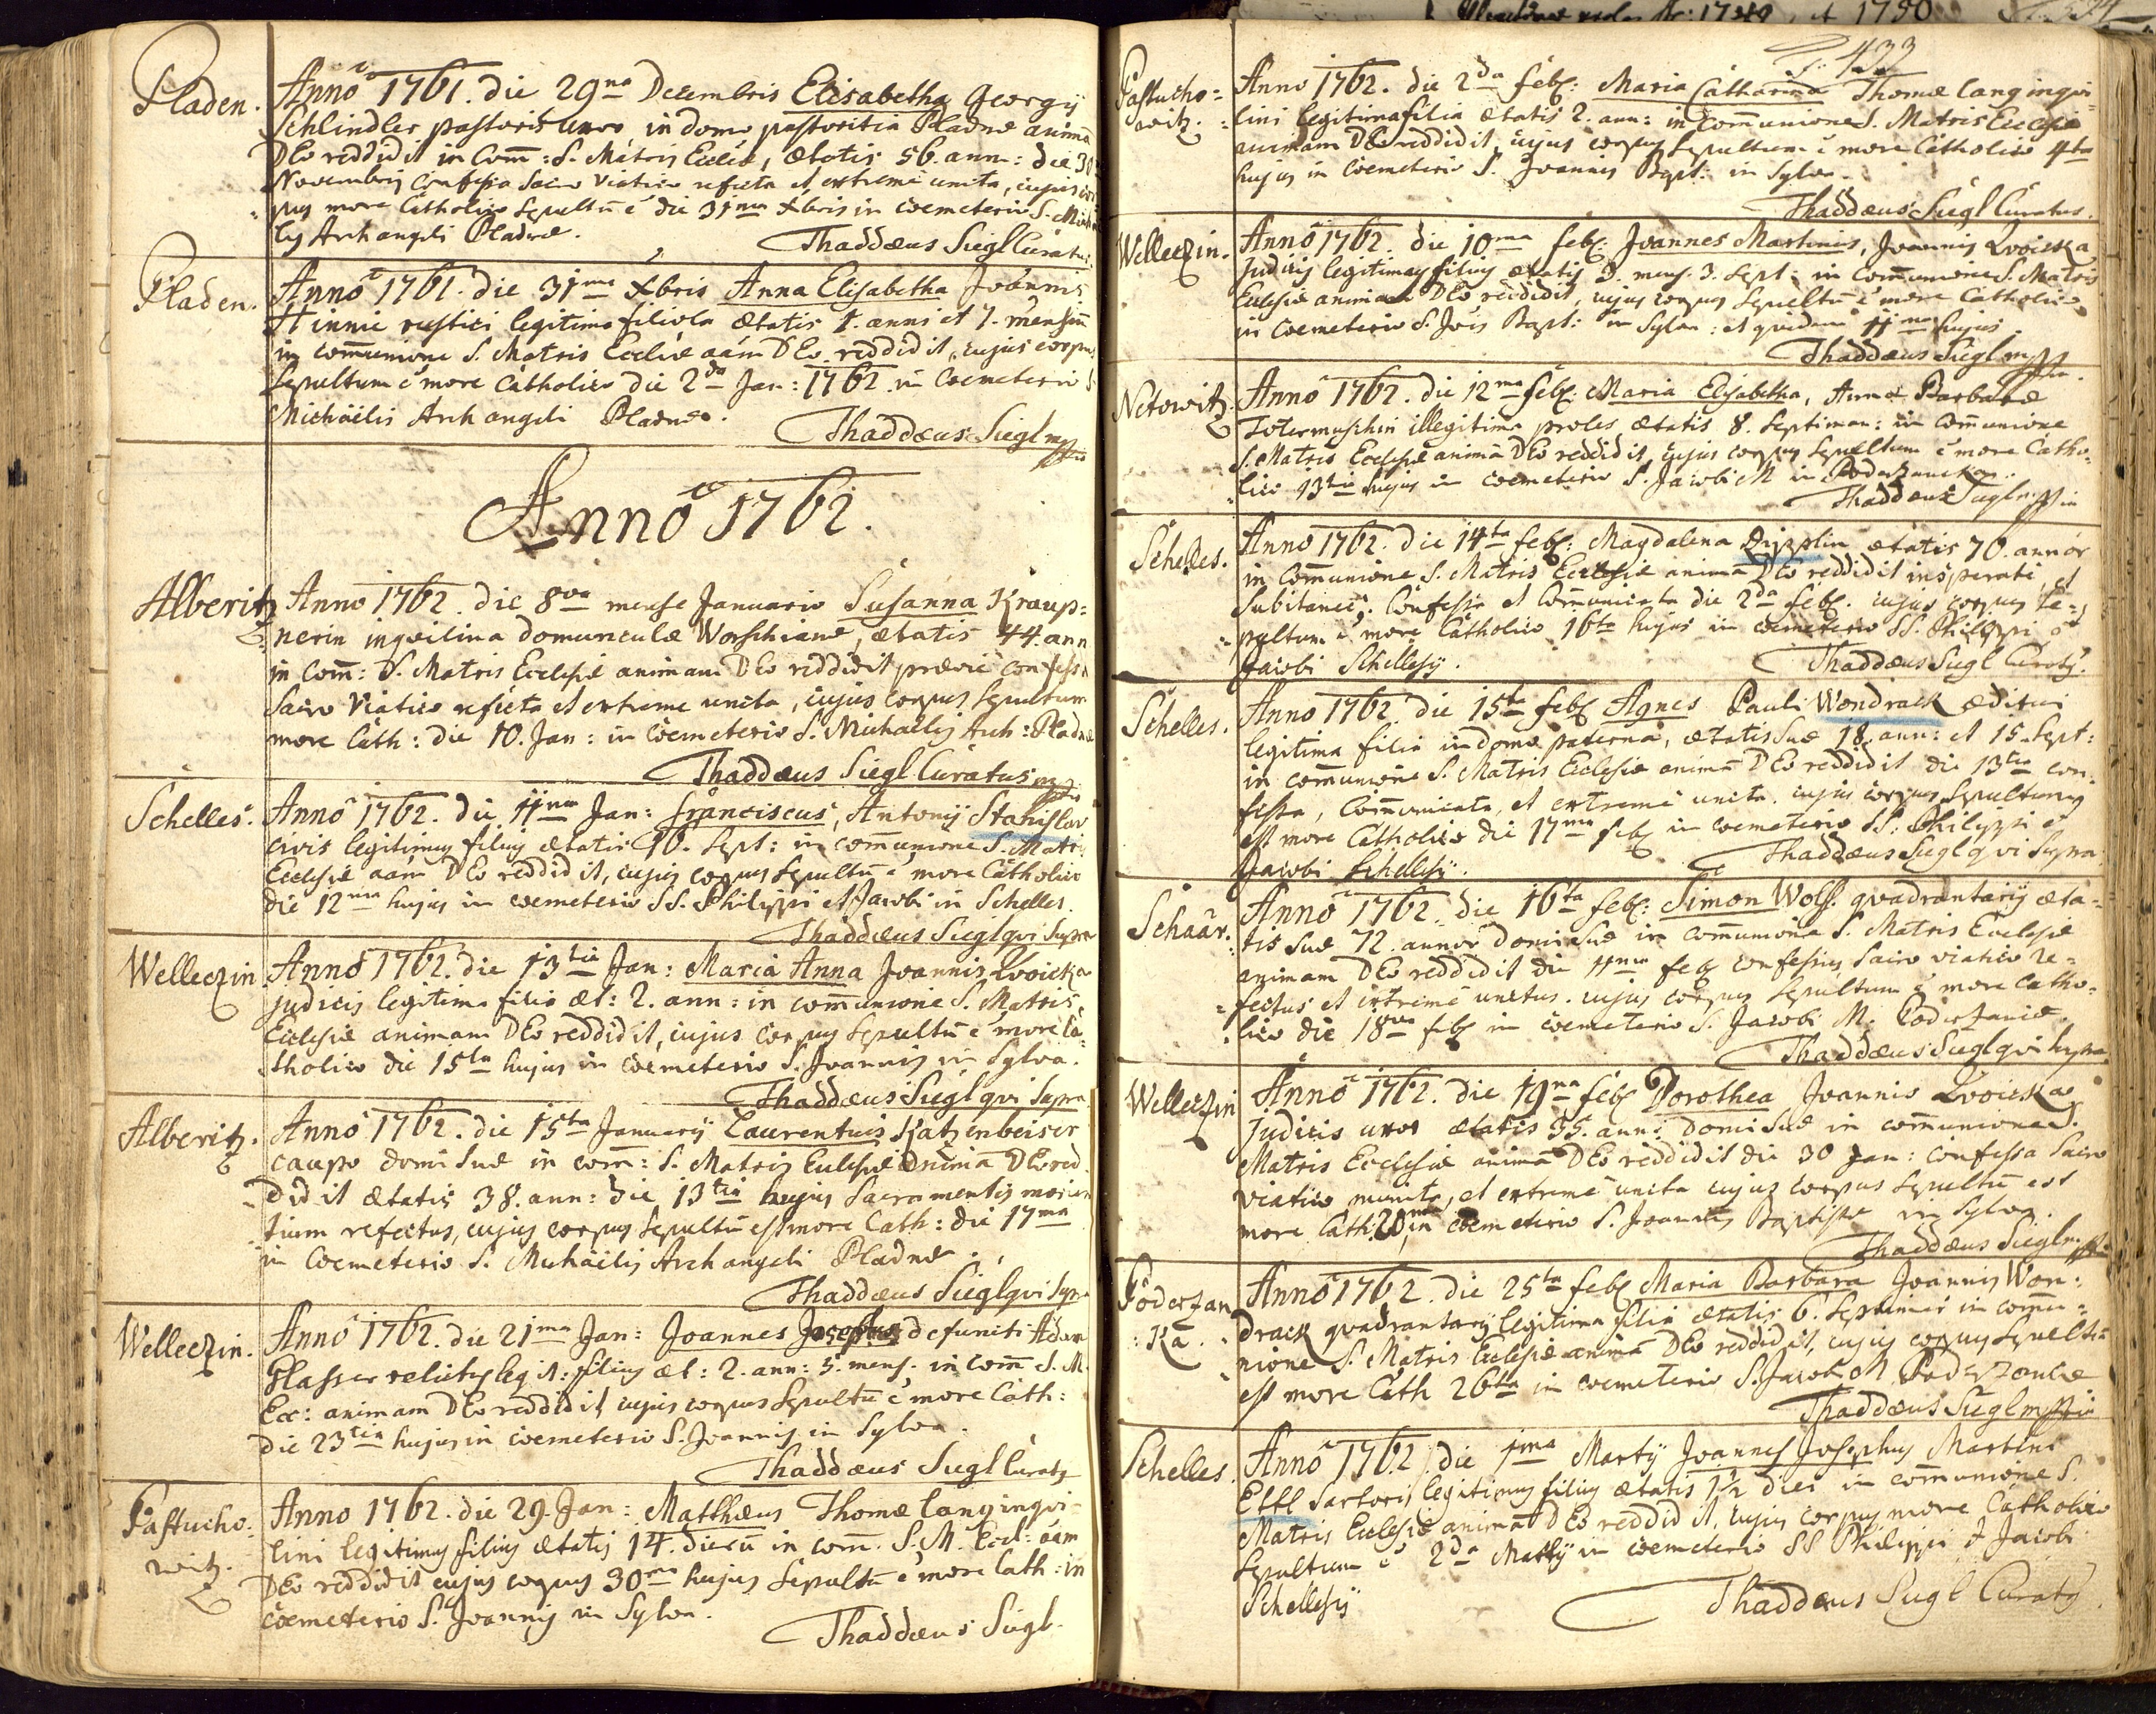 Pladen.
Anno 1761. die 29na Decembris Elisabetha Georgij
Schlindler pastoris uxor, in domo pastoritia Pladnæ animā
DEo reddidit in Com̄: S. Matris Eccliæ, ætatis 56. ann: die 30
Novembris confessa sacro Viatico refecta et extreme uncta, cujus cor=
pus more Catholico sepultū ē die 31ma Xbris in coemeterio S. Micha
lis Archangeli Pladnæ.
Thaddæus Siegl Curatus
Pladen.
Anno 1761. die 31ma Xbris Anna Elisabetha Joannis
rustici legitima filiola ætatis 1. anni et 7. mensiū
in com̄unione S. Matris Eccliæ aām DEo reddidit, cujus corpus
sepultum ē more Catholico die 2da Jan: 1762 in Coemeterio S.
Michäelis Archangeli Pladnæ.
Thaddæus Siegl mppia
Anno 1762.
Alberitz
Anno 1762. die 8va mense Januario Susanna Kraup=
nerin inquilina domunculæ Worschianæ, ætatis 44. ann
in Com̄: S. Matris Ecclesiæ animam DEo reddidit prævie confessa
Sacro Viatico refecta et extreme uncta, cujus corpus sepultum
more Cath: die 10. Jan: in Coemeterio S. Michaëlis Arch: Pladnæ
Thaddæus Siegl Curatus mppia
Schelles.
Anno 1762. die 11ma Jan: Franciscus, Antonij Stanislav
civis legitimus filius ætatis 10. Sept: in com̄unione S. Matris
Ecclesiæ aām DEo reddidit, cujus corpus sepultū ē more Catholico
die 12ma hujus in coemeterio SS. Philippi et Jacobi in Schelles.
Thaddæus Siegl qui supra
Welleczin
Anno 1762. die 13tia Jan: Maria Anna Joannis Lvoicka
judicis legitima filia æt: 2. ann: in com̄unione S. Matris
Ecclesiæ animam DEo reddidit, cujus corpus sepultū ē more Ca=
tholico die 15ta hujus in Coemeterio S. Joannis in Sylva.
Thaddæus Siegl qui supra
Alberitz.
Anno 1762. die 15ta Januarij Laurentius Katzenbeiser
caupo domi suæ in com̄: S. Matris Ecclesiæ animā DEo red
didit ætatis 38. ann: die 13tia hujus Sacramentis morien
tium refectus, cujus corpus sepultū est more Cath: die 17ma
in Coemeterio S. Michäelis Archangeli Pladnæ.
Thaddæus Siegl qui supra
Welleczin.
Anno 1762. die 21ma Jan: Joannes Josephus defuncti Adam
Glasser relictus legit: filius æt: 2. ann: 5. mens. in com̄ S. M.
Ecc: animam DEo reddidit, cujus corpus sepultū ē more Cath:
die 23tia hujus in coemeterio S. Joannis in Sylva.
Thaddæus Siegl Curatus
Pastucho=
witz.
Anno 1762. die 29. Jan: Matthæus Thomæ Lang inqui=
lini legitimus filius ætatis 14. dierū in com̄. S. M. Eccl: aām
DEo reddidit cujus corpus 30ma hujus sepultū ē more Cath: in
coemeterio S. Joannis in Sylva.
Thaddæus Siegl
433
Pastucho=
witz.
Anno 1762. die 2da feb: Maria Catharina Thomæ Lang inqui=
lini legitima filia ætatis 2. ann: in Com̄unione S. Matris Ecclesiæ
animam DEo reddidit, cujus corpus sepultum ē more Catholico 4ta
hujus in Coemeterio S. Joannis Bapt: in Sylva.
Thaddæus Siegl Curatus.
Welleczin.
Anno 1762. die 10ma feb: Joannes Martinus, Joannis Lvoicka
Judicis legitimus filius ætatis 9. mens. 3. Sept: in Com̄unione S. Matris
Ecclesiæ animam DEo reddidit, cujus corpus sepultū ē more Catholico
in Coemeterio S. Jois Bapt: in Sylva: et quidem 11ma hujus.
Thaddæus Siegl mppia.
Netowitz.
Anno 1762. die 12ma feb: Maria Elisabetha, Annæ Barbaræ
illegitima proles ætatis 8. septiman: in Com̄unione
S. Matris Ecclesiæ animā DEo reddidit, cujus corpus sepultum ē more Catho=
lico 13tia hujus in coemeterio S. Jacobi M in Poderzancka.
Thaddæus Siegl mppia
Schelles.
Anno 1762. die 14ta feb: Magdalena ætatis 70. annor
in Com̄unione S. Matris Ecclesiæ animā DEo reddidit insperate, et
Subitanee. Confessa et Com̄unicata die 2da feb. cujus corpus se=
pultum ē more Catholico 16ta hujus in coemeterio SS. Philippi et
Jacobi Schellesij.
Thaddæus Siegl Curatus.
Schelles.
Anno 1762. die 15ta feb Agnes Pauli Wondrack æditui
legitima filia in domo paterna, ætatis suæ 18. ann: et 15. Sept:
in com̄unione S. Matris Ecclesiæ animā DEo reddidit die 13tia con=
fessa, Com̄unicata, et extreme uncta. cujus corpus sepultum
est more Catholico die 17ma feb in coemeterio SS: Philippi et
Jacobi Schellesij.
Thaddæus Siegl qui supra
Schaar.
Anno 1762. die 16ta feb: Simon Wolf. quadrantarij æta=
tis suæ 72. annor domi suæ in com̄unione S. Matris Ecclesiæ
animam DEo reddidit die 11ma feb confessus sacro viatico re=
fectus et extreme unctus. cujus corpus sepultum ē more Catho=
lico die 18va feb in coemeterio S. Jacobi M. Poderzanæ.
Thaddæus Siegl qui supra
Welleczin
Anno 1762. die 19na feb Dorothea Joannis Lvoicka
Judicis uxor ætatis 35. ann: domi suæ in com̄unione S.
Matris Ecclesiæ animā DEo reddidit die 30 Jan: confessa Sacro
viatico munita, et extreme uncta cujus corpus sepultū est
more Cath: 20ma in coemeterio S. Joannis Baptistæ in Sylva.
Thaddæus Siegl mppia
Poderzan
ka.
Anno 1762. die 25ta feb Maria Barbara Joannis Won=
drack quadrantarij legitima filia ætatis 6. septimar in com̄u=
nione S. Matris Ecclesiæ animā DEo reddidit, cujus corpus sepultū
est more Cath 26ta in coemeterio S. Jacobi M Poderzancæ
Thaddæus Siegl mppia
Schelles.
Anno 1762. die 1ma Martij Joannes Josephus Martini
Ettl sartoris legitimus filius ætatis 1½ diei in com̄unione S.
Matris Ecclesiæ animā DEo reddidit, cujus corpus more Catholico
sepultum ē 2da Martij in coemeterio SS Philippi et Jacobi
Schellesij
Thaddæus Siegl Curatus